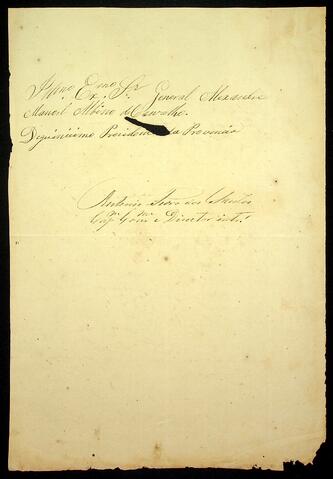 Illmo. Exmo. Sr. General Alexandre
Manoel Albino de Carvalho.
Digníssimo Presidente da Provincia
Antonio dos Santos
Capm. Comme. e Director intº.